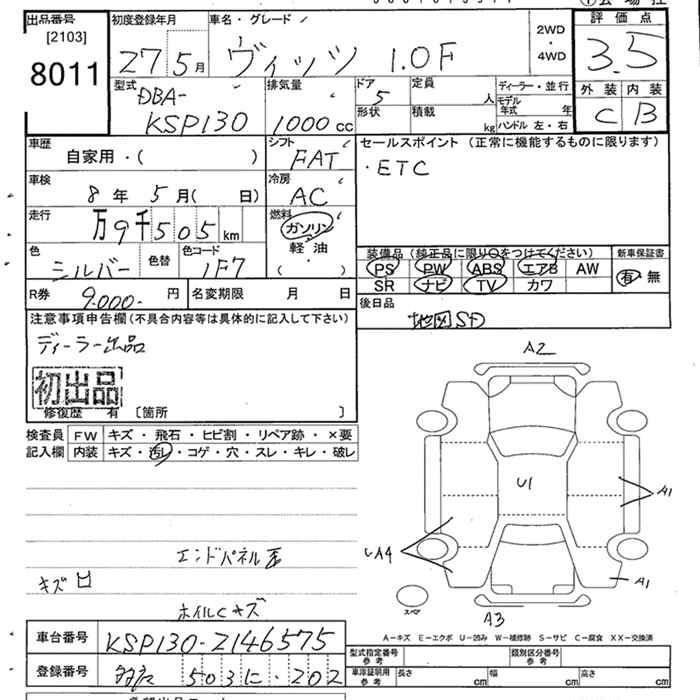 出品番号
[2103]
8011
初度登録年月
27 5月
車名・グレード
ヴィッツ 1.0F
2WD
・
4WD
評価点
3.5
外装 内装
C B
型式
DBA-
KSP130
排気量
1000 cc
ドア
5
形状
定員
人
積載
kg
ディーラー・並行
モデル年式 年
ハンドル 左・右
車歴
自家用・( )
シフト
FAT
セールスポイント (正常に機能するものに限ります)
・ETC
車検
8年 5月( 日)
冷房
AC
走行
万9千505km
燃料
ガソリン
・
軽油
( )
色
シルバー
色替
色コード
1F7
装備品 (純正品に限り○をつけてください)
PS PW ABS エアB AW
SR ナビ TV カワ
新車保証書
有 無
R券 9.000.- 円
名変期限 月 日
後日品
地図SD
注意事項申告欄(不具合内容等は具体的に記入して下さい)
ディーラー出品
初出品
修復歴 有 [箇所 ]
検査員記入欄
FW キズ・飛石・ヒビ割・リペア跡・×要
内装 キズ・汚レ・コゲ・穴・スレ・キレ・破レ
A2
U1
A1
A4
A1
スペア
A3
エンドパネル
キズ
ホイルCキズ
A−キズ E−エクボ U−凹み W−補修跡 S−サビ C−腐食 XX−交換済
車台番号 KSP130-2146575
登録番号 503 に・202
型式指定番号 参考
類別区分番号 参考
車庫証明用 参考
長さ cm
幅 cm
高さ cm